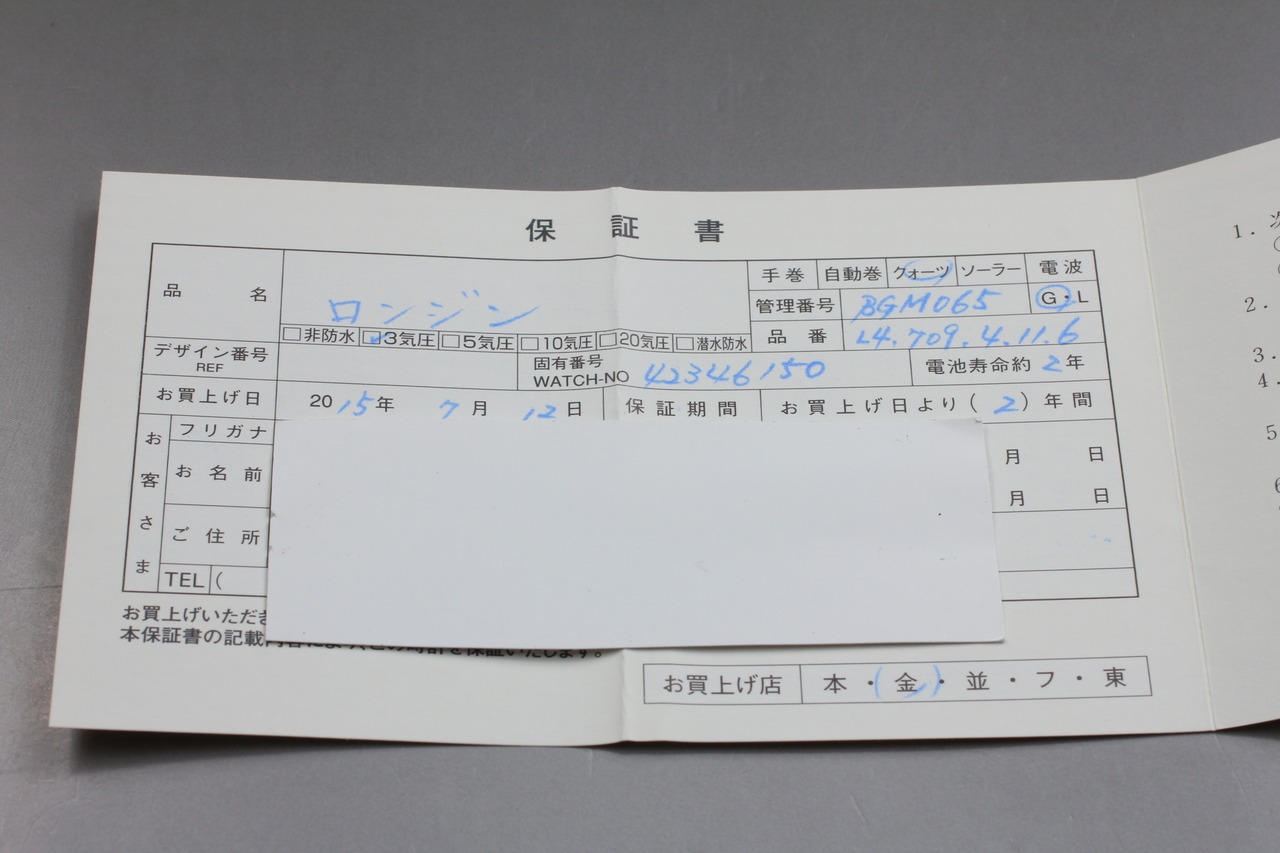 保証書
品名 ロンジン 手巻 自動巻 クォーツ ソーラー 電波
管理番号 BGM065 G・L
□非防水 ☑3気圧 □5気圧 □10気圧 □20気圧 □潜水防水 品番 L4.709.4.11.6
デザイン番号 REF 固有番号 WATCH-NO 42346150 電池寿命約2年
お買上げ日 2015年 7月 12日 保証期間 お買上げ日より(2)年間
お客さま フリガナ
お名前 月 日
月 日
ご住所
TEL (
お買上げいただき
本保証書の記載内容により、この時計を保証いたします。
お買上げ店 本・(金)・並・フ・東
1.
2.
3.
4.
5